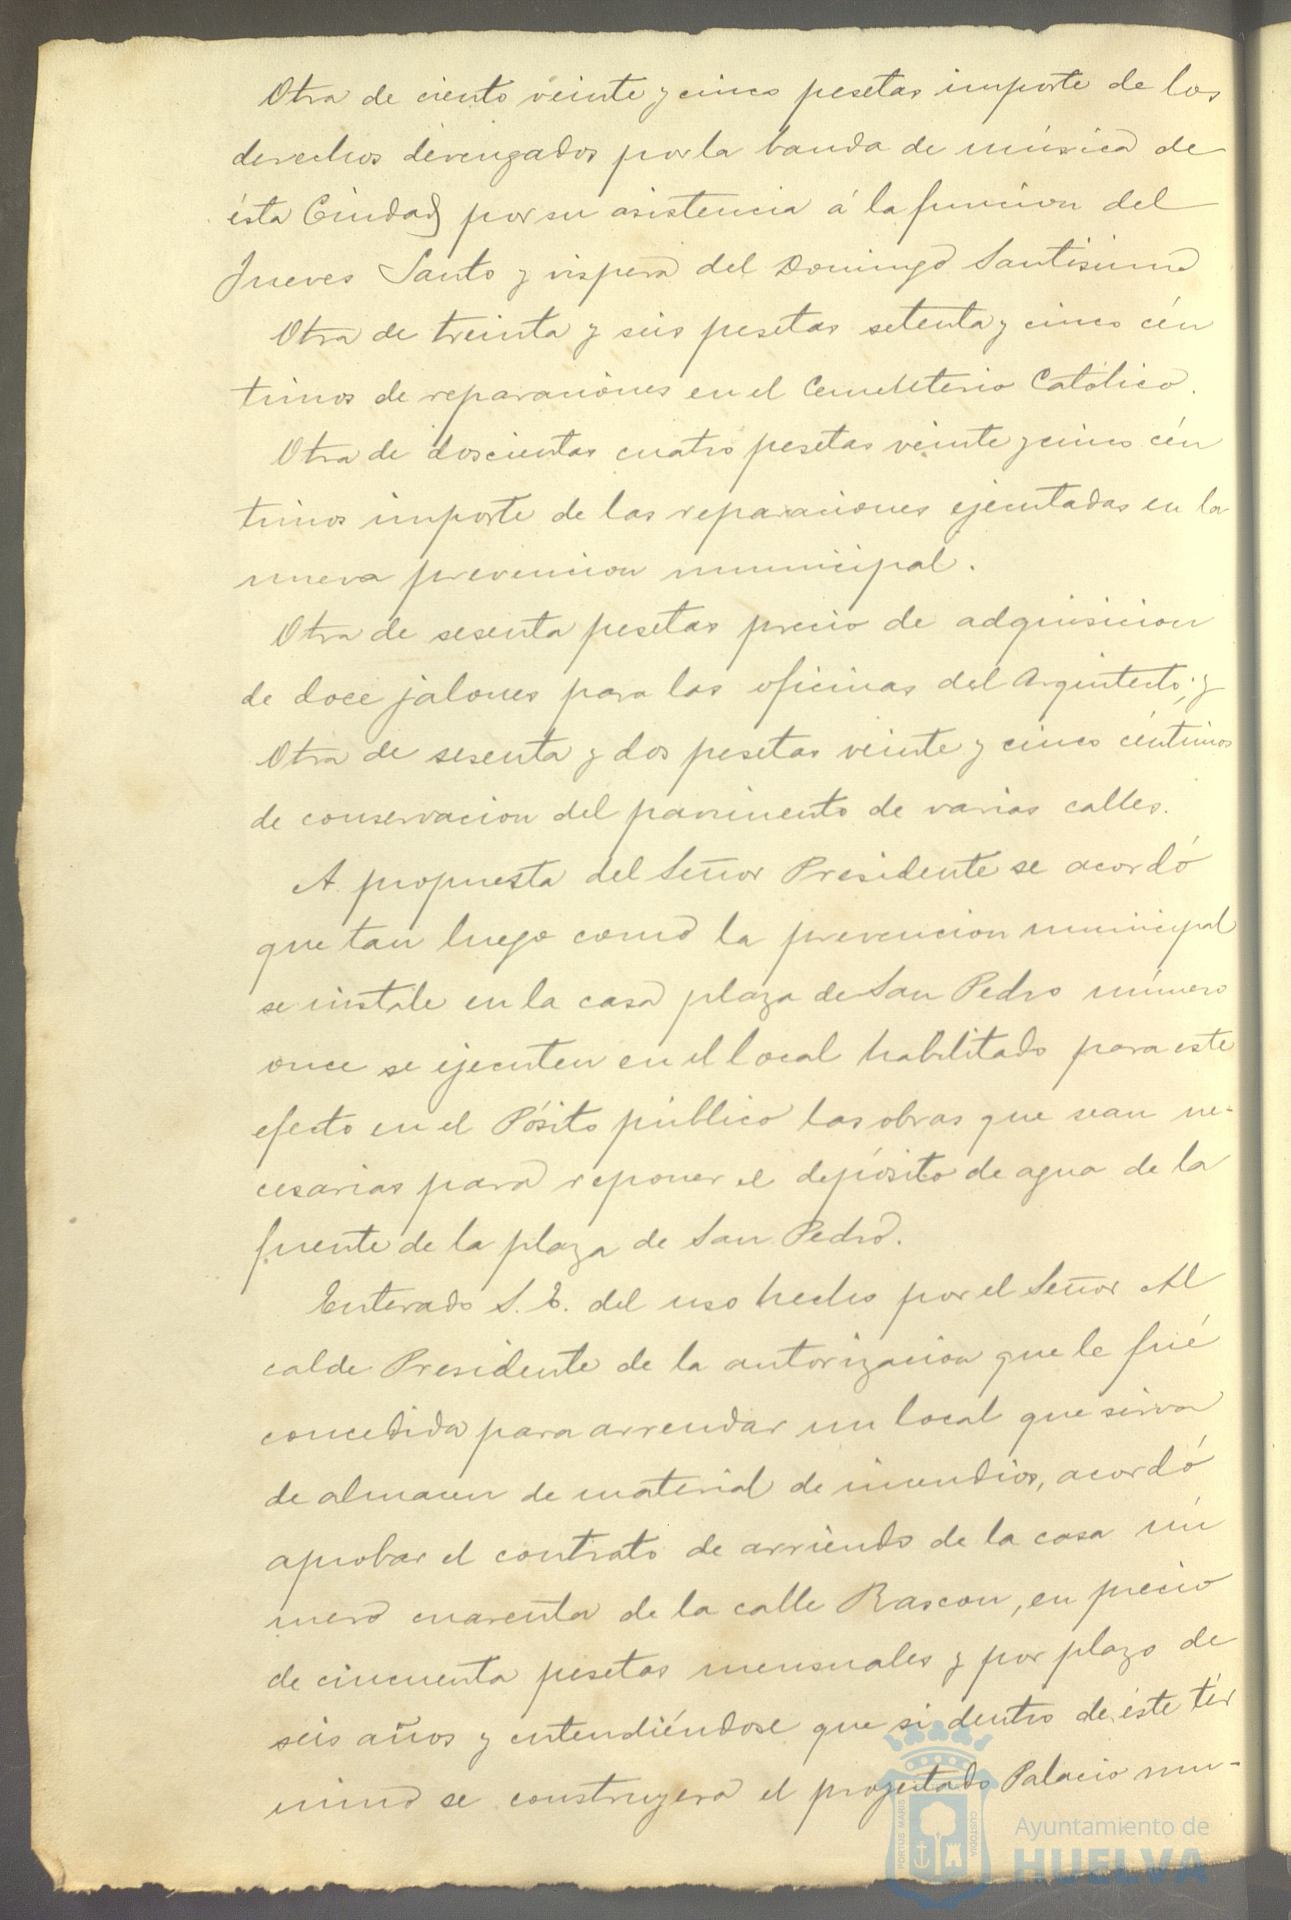 Otra de ciento veinte y cinco pesetas importe de los
derechos devengados por la banda de música de
ésta Ciudad por su asistencia á la funcion del
Jueves Santo y vispera del Domingo Santisimo
Otra de treinta y seis pesetas setenta y cinco cén
timos de reparaciones en el Cementerio Católico.
Otra de doscientas cuatro pesetas veinte y cinco cén
timos importe de las reparaciones ejecutadas en la
nueva prevencion municipal.
Otra de sesenta pesetas precio de adquisicion
de doce jalones para las oficinas del Arquitecto; y
Otra de sesenta y dos pesetas veinte y cinco céntimos
de conservacion del pavimento de varias calles.
A propuesta del Señor Presidente se acordó
que tan luego como la prevencion municipal
se instale en la casa plaza de San Pedro número
once se ejecuten en el local habilitado para este
efecto en el Pósito público las obras que sean ne-
cesarias para reponer el depósito de agua de la
fuente de la plaza de San Pedro.
Enterado S. E. del uso hecho por el Señor Al
calde Presidente de la autorizacion que le fué
concedida para arrendar un local que sirva
de almacen de material de incendios, acordó
aprobar el contrato de arriendo de la casa nú
mero cuarenta de la calle Rascon, en precio
de cincuenta pesetas mensuales y por plazo de
seis años y entendiéndose que si dentro de éste tér
mino se construyera el proyectado Palacio mu-
PORTUS MARIS CUSTODIA
Ayuntamiento de
HUELVA